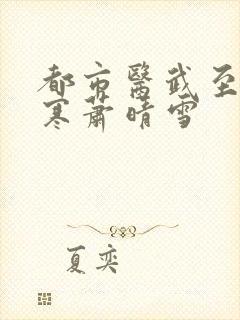 都市醫武至
寒蕭晴雪
夏奕